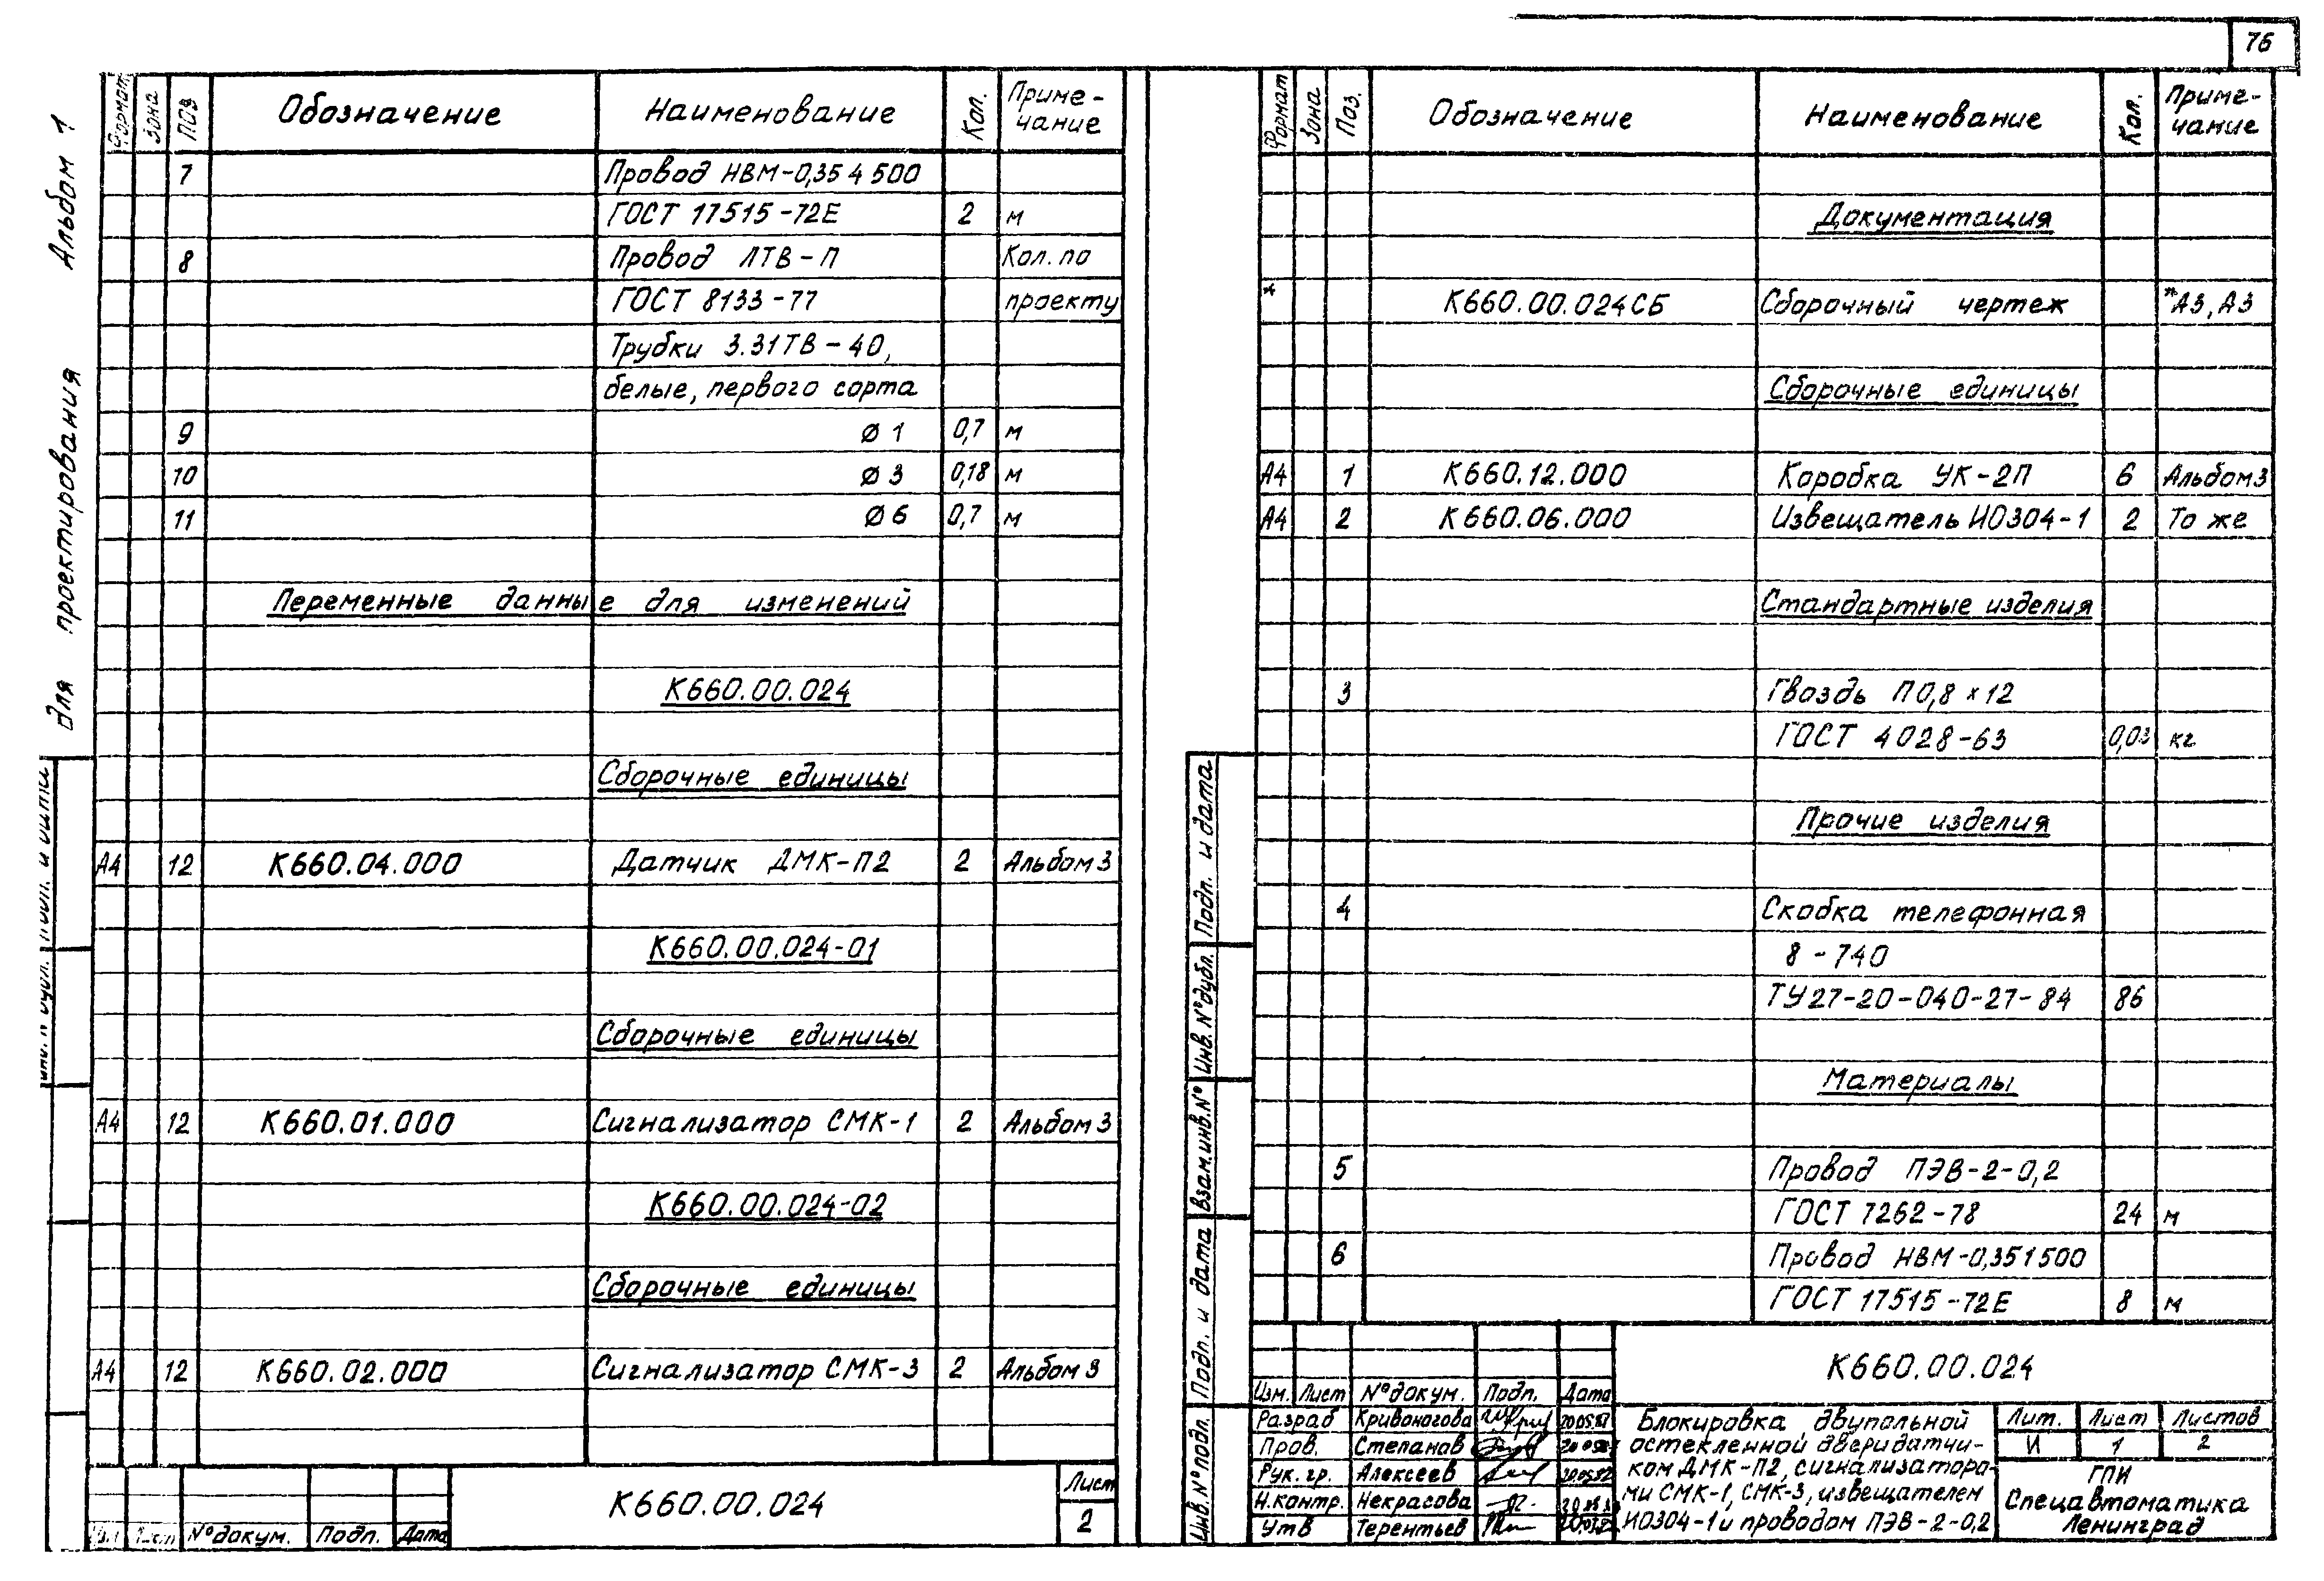 76
Альбом 1
для проектирования
Формат Зона Поз Обозначение Наименование Кол. Приме-
чание
7 Провод НВМ-0,35 4 500
ГОСТ 17515-72Е 2 м
8 Провод ЛТВ-П Кол. по
ГОСТ 8133-77 проекту
Трубки 3.31ТВ-40,
белые, первого сорта
9 Ø 1 0,7 м
10 Ø 3 0,18 м
11 Ø 6 0,7 м
Переменные данные для изменений
К660.00.024
Сборочные единицы
А4 12 К660.04.000 Датчик ДМК-П2 2 Альбом 3
К660.00.024-01
Сборочные единицы
А4 12 К660.01.000 Сигнализатор СМК-1 2 Альбом 3
К660.00.024-02
Сборочные единицы
А4 12 К660.02.000 Сигнализатор СМК-3 2 Альбом 3
К660.00.024
Лист
2
Лист N° докум. Подп. Дата
Формат Зона Поз. Обозначение Наименование Кол. Приме-
чание
Документация
* К660.00.024СБ Сборочный чертеж *А3, А3
Сборочные единицы
А4 1 К660.12.000 Коробка УК-2П 6 Альбом 3
А4 2 К660.06.000 Извещатель ИО304-1 2 То же
Стандартные изделия
3 Гвоздь П 0,8 х 12
ГОСТ 4028-63 0,03 кг
Прочие изделия
4 Скобка телефонная
8-740
ТУ27-20-040-27-84 86
Материалы
5 Провод ПЭВ-2-0,2
ГОСТ 7262-78 24 м
6 Провод НВМ-0,35 1 500
ГОСТ 17515-72Е 8 м
Подп. и дата
Инв. N° дубл.
Взам. инв. N°
Подп. и дата
Инв. N° подл.
К660.00.024
Изм. Лист N° докум. Подп. Дата
Разраб Кривоногова
Пров. Степанов
Рук. гр. Алексеев
Н. контр. Некрасова
Утв Терентьев
Блокировка двупольной
остекленной двери датчи-
ком ДМК-П2, сигнализатора-
ми СМК-1, СМК-3, извещателем
ИО304-1 и проводом ПЭВ-2-0,2
Лит. Лист Листов
И 1 2
ГПИ
Спецавтоматика
Ленинград